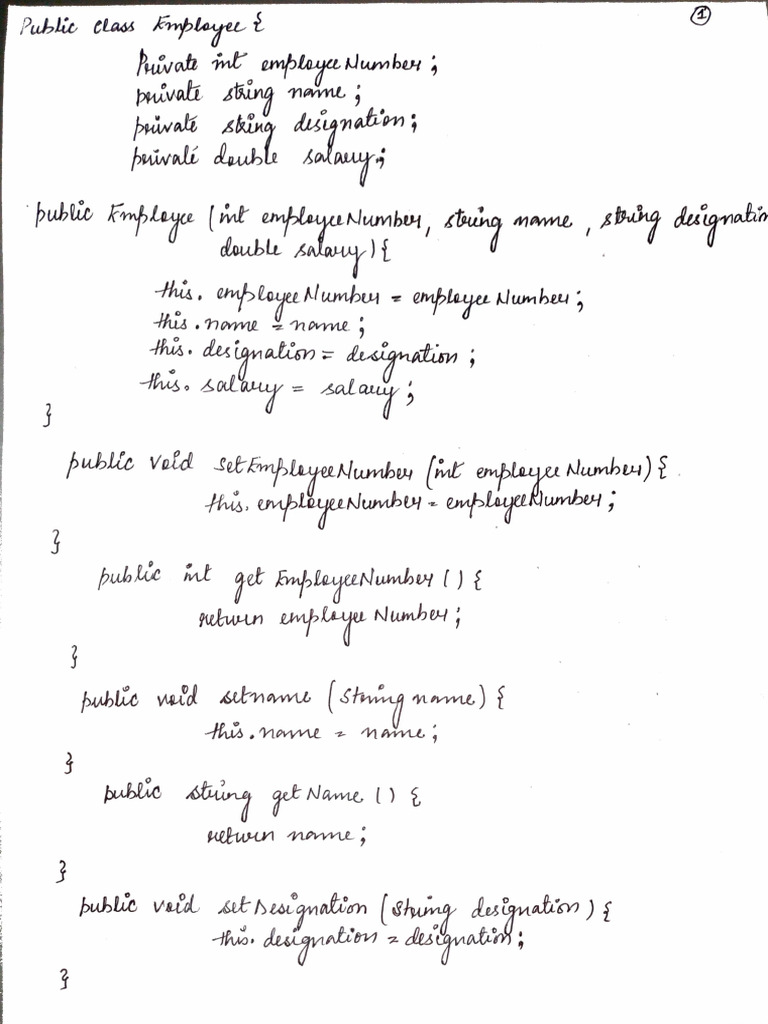 ①
Public class Employee {
Private int employeeNumber;
private string name;
private string designation;
private double salary;
public Employee (int employeeNumber, string name, string designation
double salary) {
this. employeeNumber = employeeNumber;
this.name = name;
this. designation = designation;
this. salary = salary;
}
public void setEmployeeNumber (int employeeNumber) {
this. employeeNumber = employeeNumber;
}
public int get EmployeeNumber () {
return employeeNumber;
}
public void setname (String name) {
this.name = name;
}
public string getName () {
return name;
}
public void setDesignation (String designation) {
this. designation = designation;
}